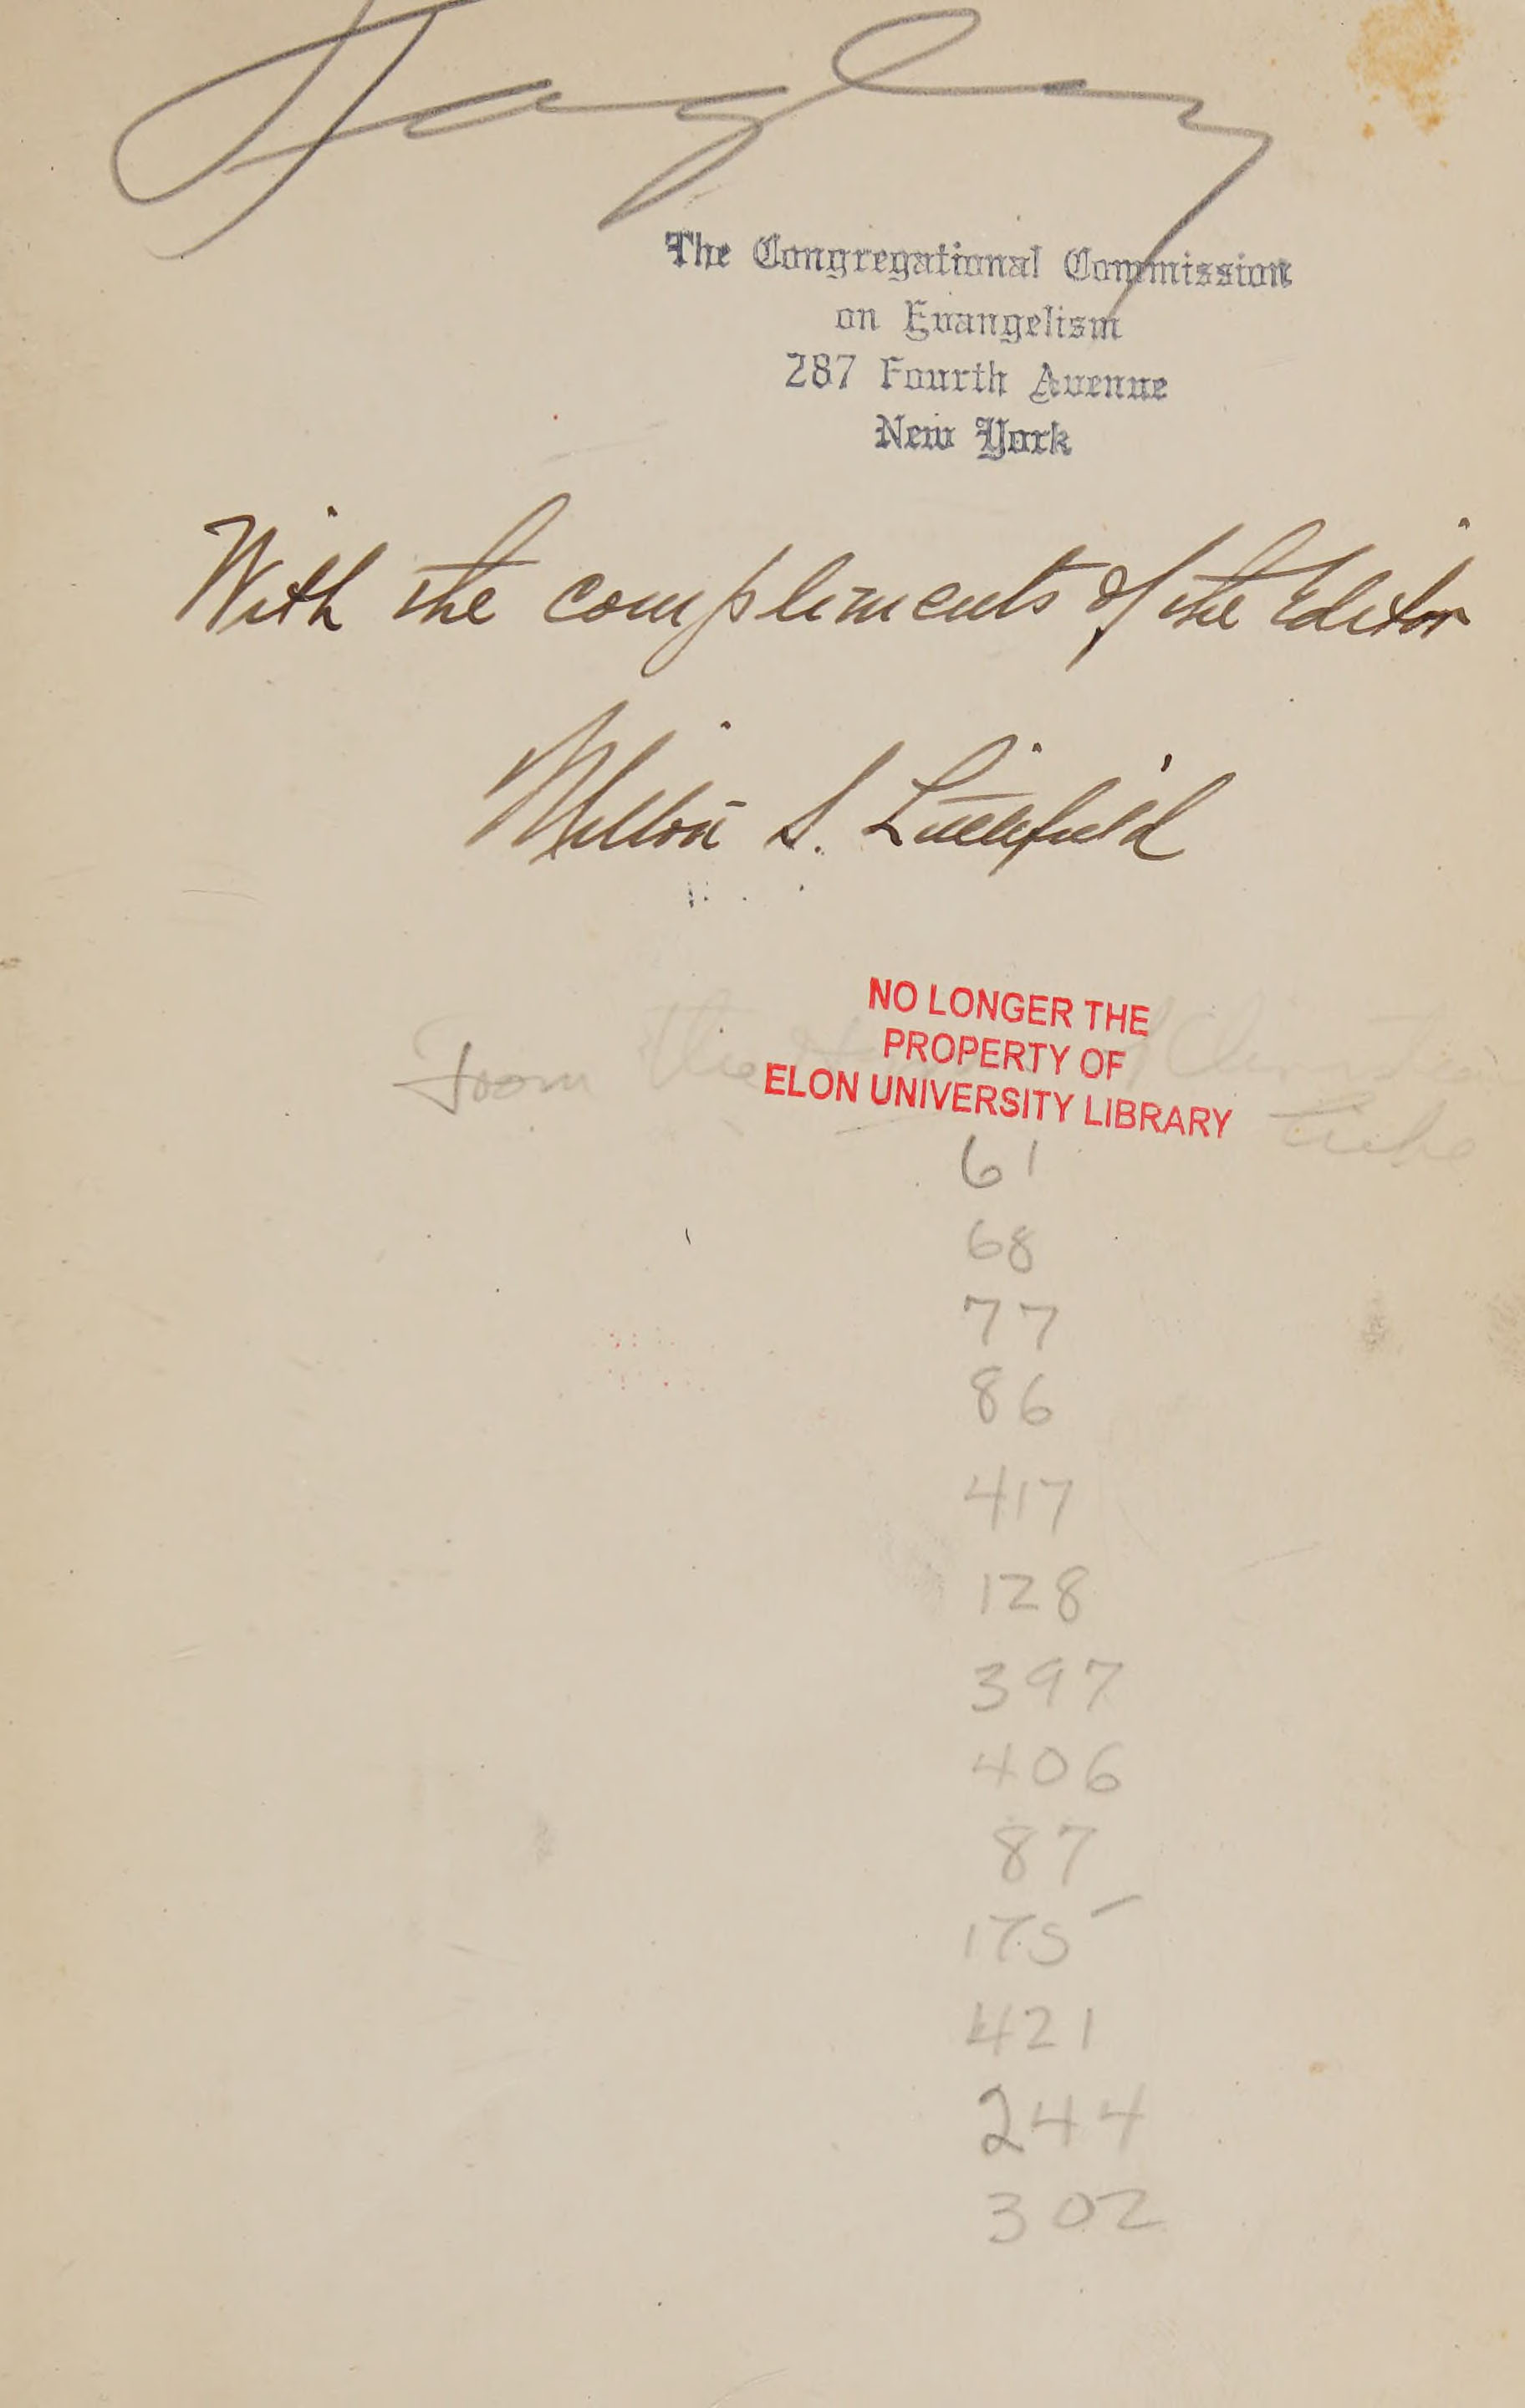 Fagley
The Congregational Commission
on Evangelism
287 Fourth Avenue
New York
With the compliments of the Editor
Milton S. Littlefield
NO LONGER THE
PROPERTY OF
ELON UNIVERSITY LIBRARY
From the
61
68
77
86
417
128
397
406
87
175
421
244
302